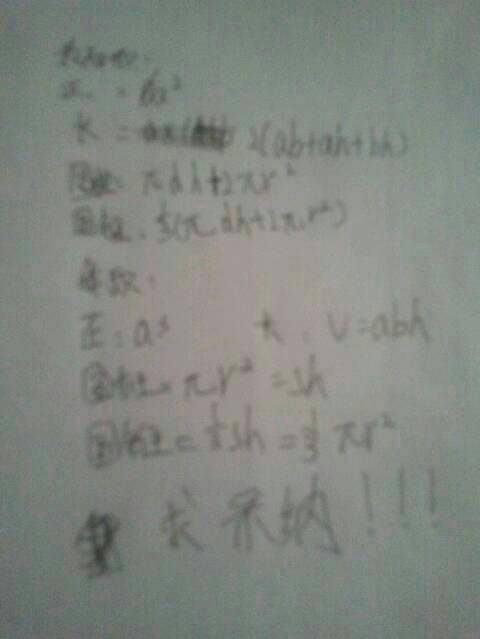 正 = 6a²
长 = 2(ab+ah+bh)
圆柱: πdh+2πr²
圆柱. ⅓(πdh+2πr²)
体积:
正: a³ 长: V=abh
圆柱 = πr² = sh
圆柱 = ⅓sh = ⅓πr²
求采纳!!!